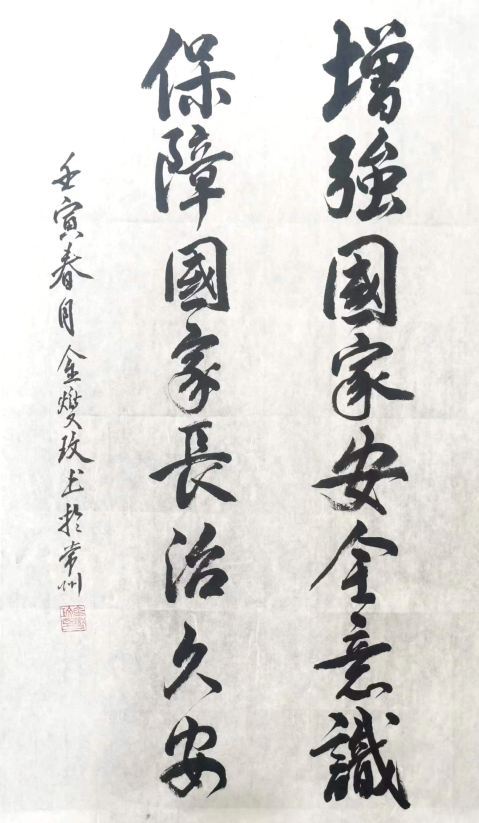 增強國家安全意識
保障國家長治久安
壬寅春月金燮玫书於常州